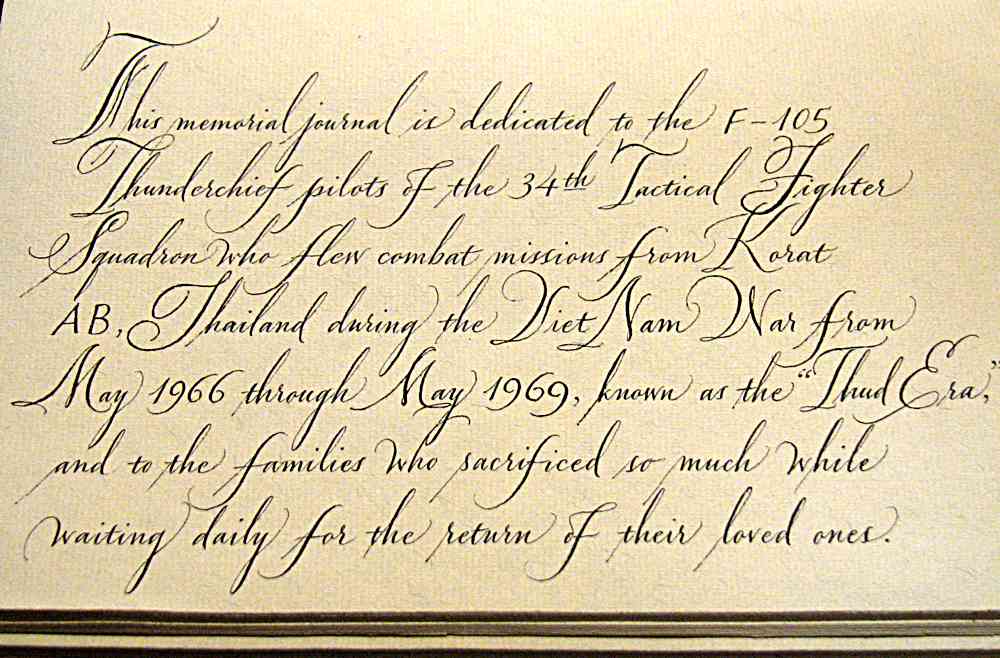 This memorial journal is dedicated to the F-105
Thunderchief pilots of the 34th Tactical Fighter
Squadron who flew combat missions from Korat
AB, Thailand during the Viet Nam War from
May 1966 through May 1969, known as the "Thud Era,"
and to the families who sacrificed so much while
waiting daily for the return of their loved ones.